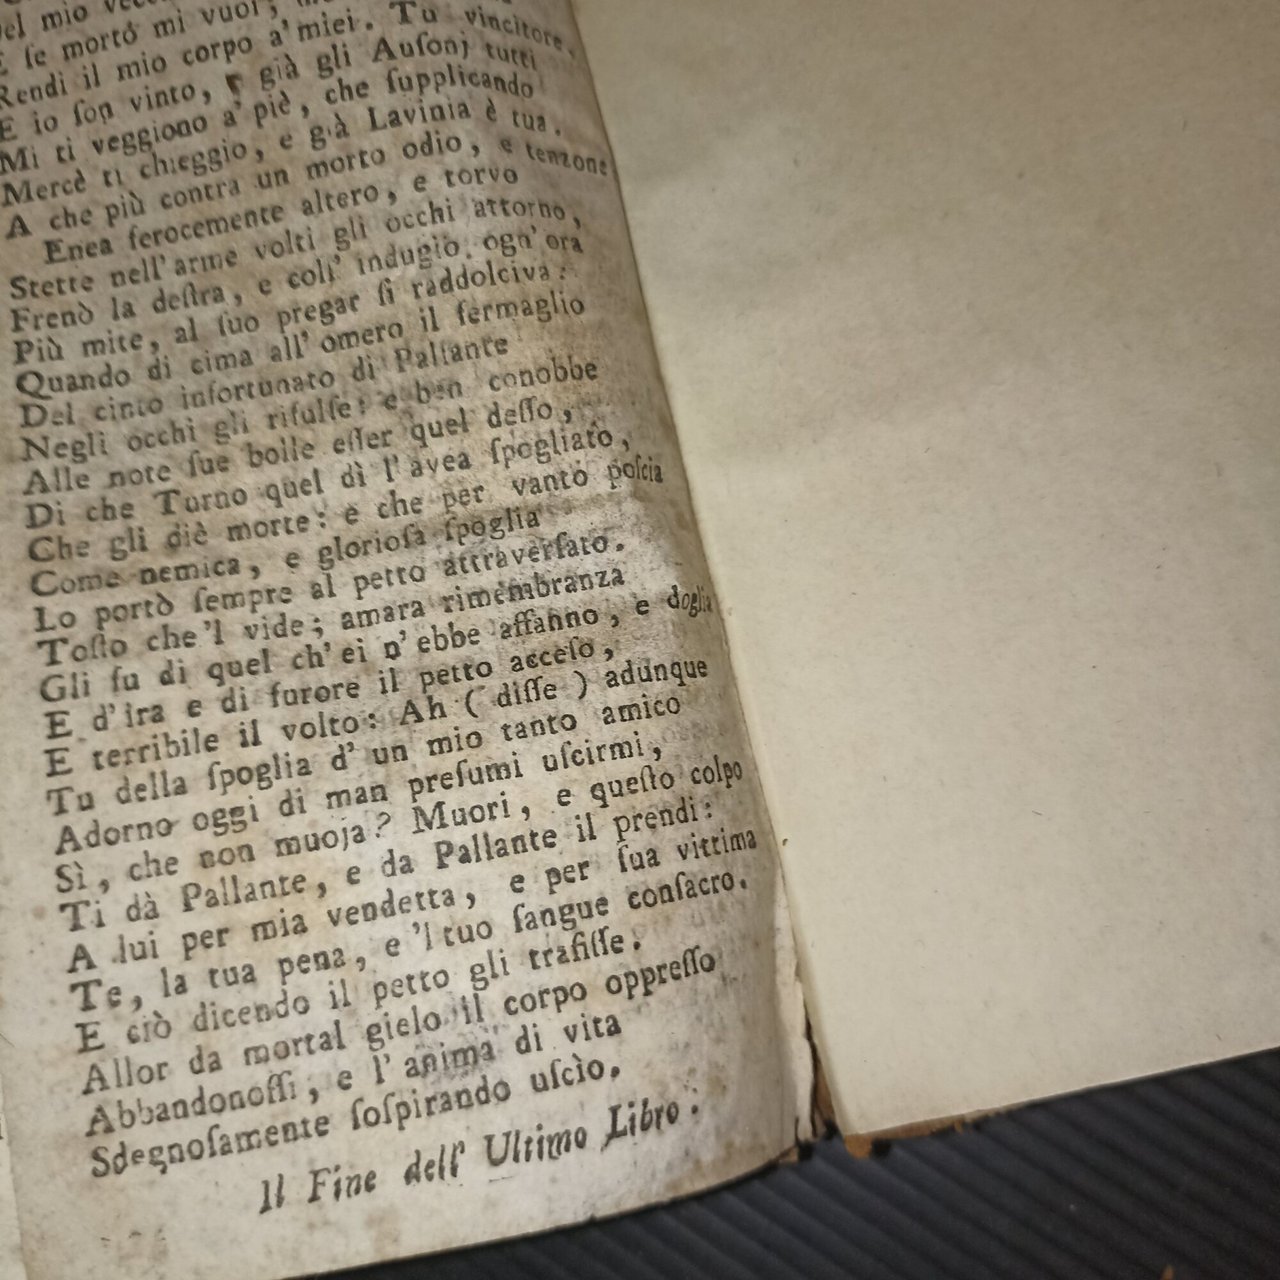 mio
E ſe mortò mi vuoi,
Rendi il mio corpo a' miei. Tu vincitore,
E io ſon vinto, e già gli Auſonj tutti
Mi ti veggiono a' piè, che ſupplicando
Mercè ti chieggio, e già Lavinia è tua.
A che più contra un morto odio, e tenzone
Enea ferocemente altero, e torvo
Stette nell' arme volti gli occhi attorno,
Frenò la deſtra, e coll' indugio ogn' ora
Più mite, al ſuo pregar ſi raddolciva:
Quando di cima all' omero il fermaglio
Del cinto infortunato di Pallante
Negli occhi gli rifulſe: e ben conobbe
Alle note ſue bolle eſſer quel deſſo,
Di che Turno quel dì l' avea ſpogliato,
Che gli diè morte: e che per vanto poſcia
Come nemica, e glorioſa ſpoglia
Lo portò ſempre al petto attraverſato.
Toſto che 'l vide; amara rimembranza
Gli fu di quel ch' ei n' ebbe affanno, e doglia
E d' ira e di furore il petto acceſo,
E terribile il volto: Ah ( diſſe ) adunque
Tu della ſpoglia d' un mio tanto amico
Adorno oggi di man preſumi uſcirmi,
Sì, che non muoja? Muori, e queſto colpo
Ti dà Pallante, e da Pallante il prendi:
A lui per mia vendetta, e per ſua vittima
Te, la tua pena, e 'l tuo ſangue conſacro.
E ciò dicendo il petto gli trafiſſe.
Allor da mortal gielo il corpo oppreſſo
Abbandonoſſi, e l' anima di vita
Sdegnoſamente ſoſpirando uſcìo.
Il Fine dell' Ultimo Libro.